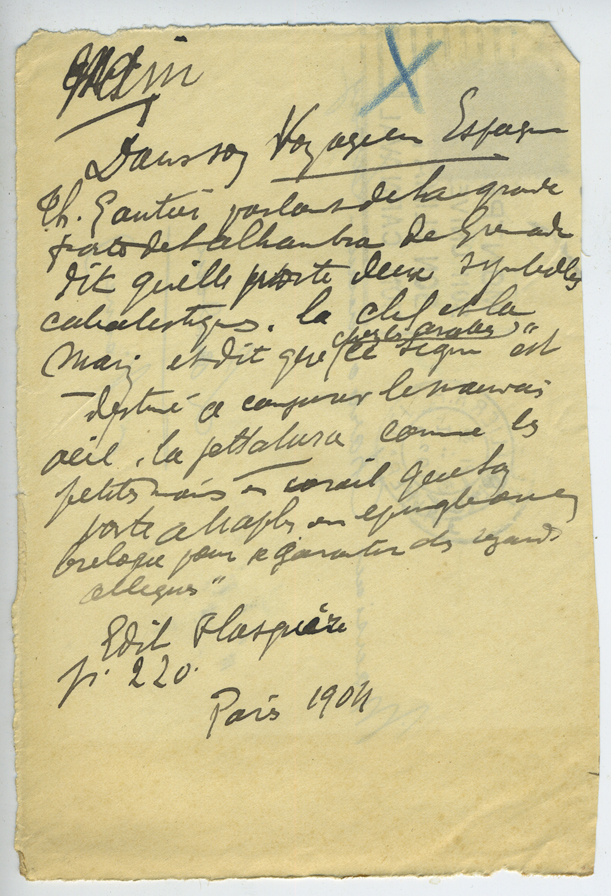 Main
Dans son Voyage en Espagne
Th. Gautier parlant de la grande
porte de l'alhambra de Grenade
dit qu'elle porte deux symboles
cabalistiques. la clef et la
Main et dit que (chez les arabes)
ce signe "est
destiné a conjurer le mauvais
oeil, la jettatura comme les
petites mains en corail que l'on
porte a Naples en epingle ou en
breloque pour se garantir des regards
obliques"
Edit Flasquère
p. 220.
Paris 1904